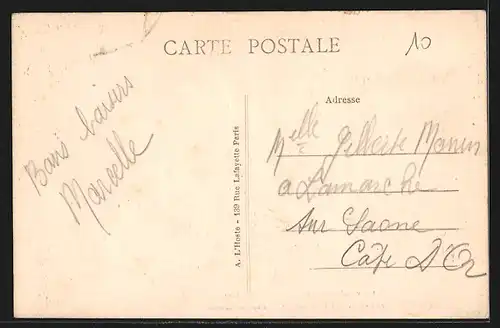 CARTE POSTALE
10
Adresse
Bons baisers
Marcelle
A. L'Hoste - 139 Rue Lafayette Paris
Melle Gilberte Monin
a Lamarche
sur Saone
Cote D'Or